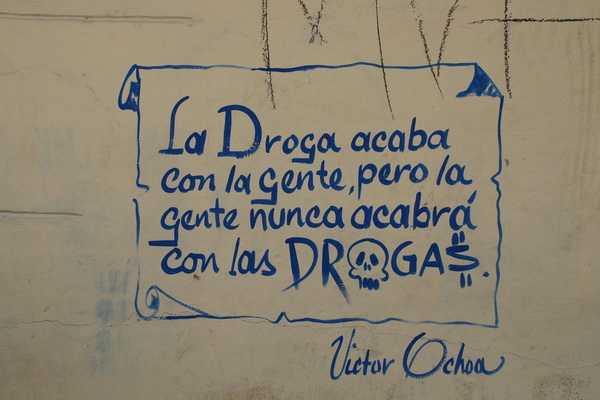 La Droga acaba
con la gente, pero la
gente nunca acabrá
con las DROGA$.
Victor Ochoa